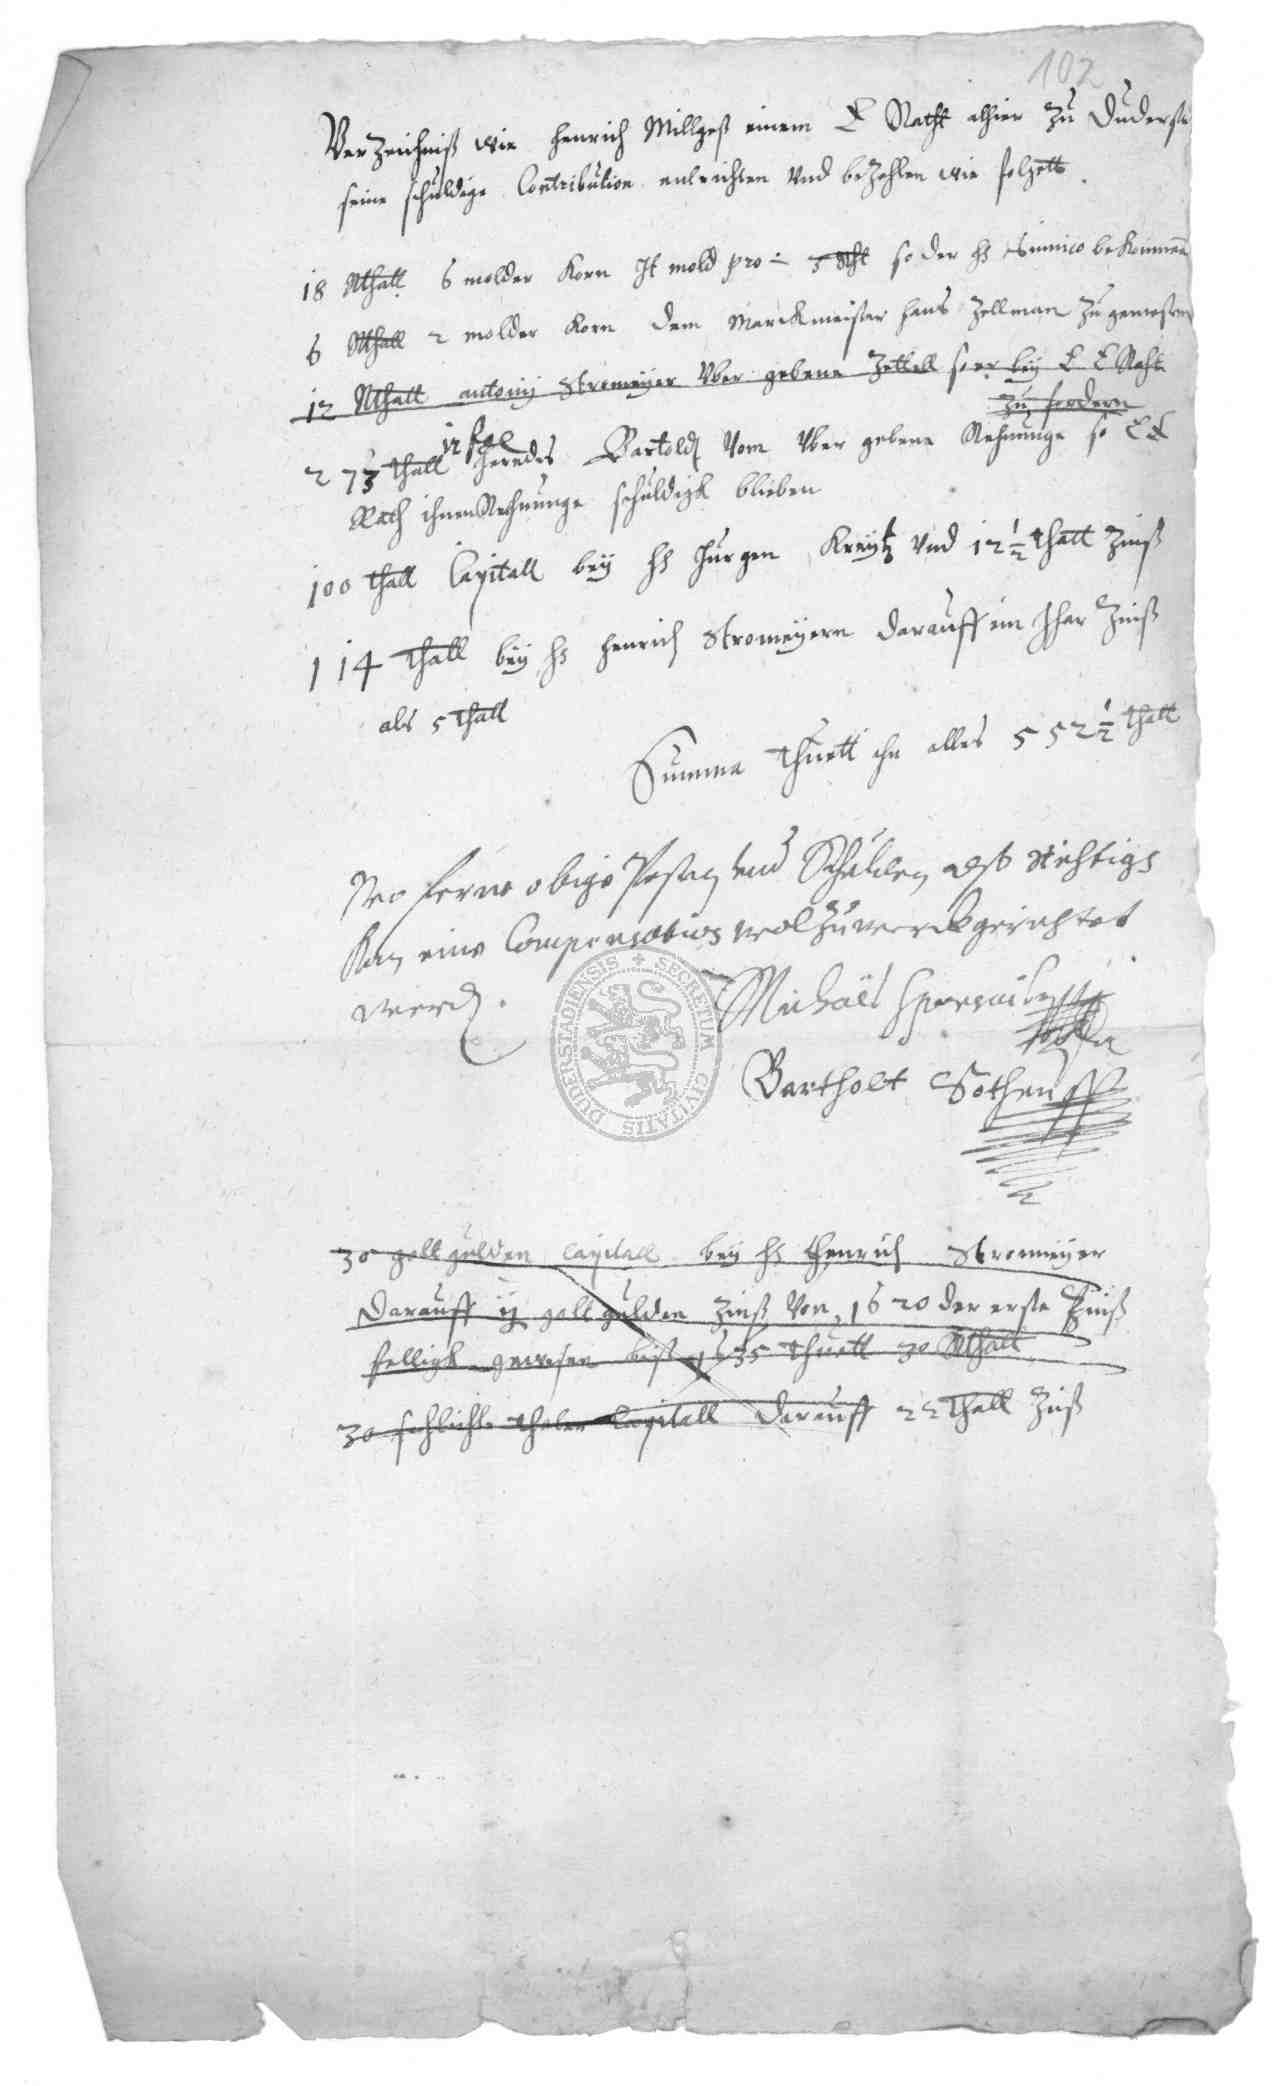 102
Verzeichniß wie Henrich Millgeß einem E Rath alhier zu Duderst
seine schuldige Contribution entrichten Vnd bezahlen wie folgett
18 Rthall 6 molder Korn Jt mold pro so der hs bekommen
6 Rthall 2 molder Korn dem Marckmeister hans Zellman zu gemessen
12 Rthall antonij Stromeijer Vber gebene Zettell so er beij E E Raht
zu fordern
12 fgl
273 thall heredes Bartold Vom Vber gebene Rechnunge so E E
Rath ihnen Rechnunge schuldigk blieben
100 thall Capitall beij hs Jurgen Kreijtz Vnd 12 1/2 thall Zinß
114 thall beij hs Henrich Stromeijern darauff ein Jhar Zinß
als 5 thall
Summa thuett ihn alles 552 1/2 thall
So ferne obige Posten vnd Schulden also richtigh
kan eine Compensation wol zu werck gerichtet
werd.
Michaël
Bartholt Sothen
SECRETUM CIVITATIS DUDERSTADIENSIS
30 goltgulden Capitall beij hs Henrich Stromeijer
darauff ij golt gulden Zinß Von 1620 der erste Zinß
felligk gewesen biß 1635 thuett 30 Rthall
30 schlichte thaler Capitall darauff 22 thall Zinß